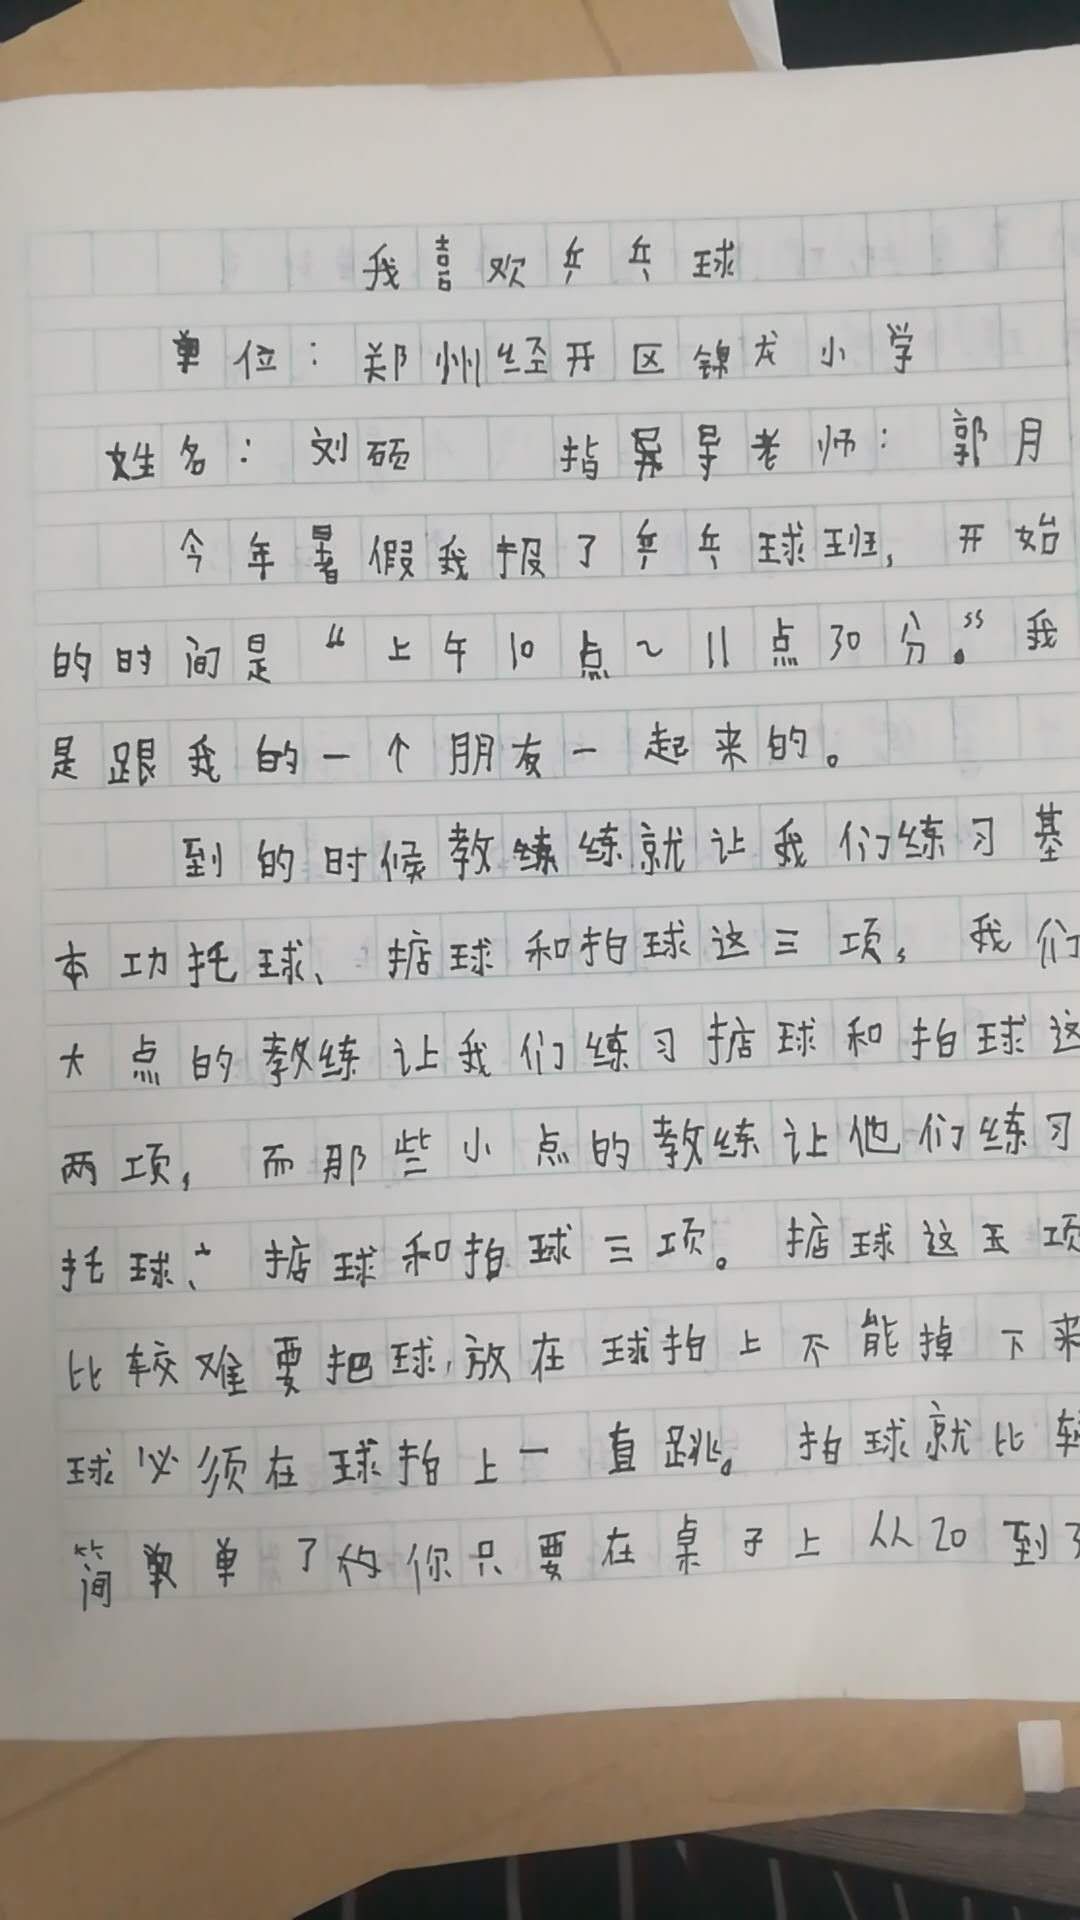 我喜欢乒乓球
单位：郑州经开区锦龙小学
姓名：刘硕 指导老师：郭月
今年暑假我报了乒乓球班，开始
的时间是“上午10点~11点30分。”我
是跟我的一个朋友一起来的。
到的时候教练就让我们练习基
本功托球、掂球和拍球这三项。我们
大点的教练让我们练习掂球和拍球这
两项，而那些小点的教练让他们练习
托球、掂球和拍球三项。掂球这项
比较难要把球，放在球拍上不能掉下来
球必须在球拍上一直跳。拍球就比较
简单了你只要在桌子上从20到